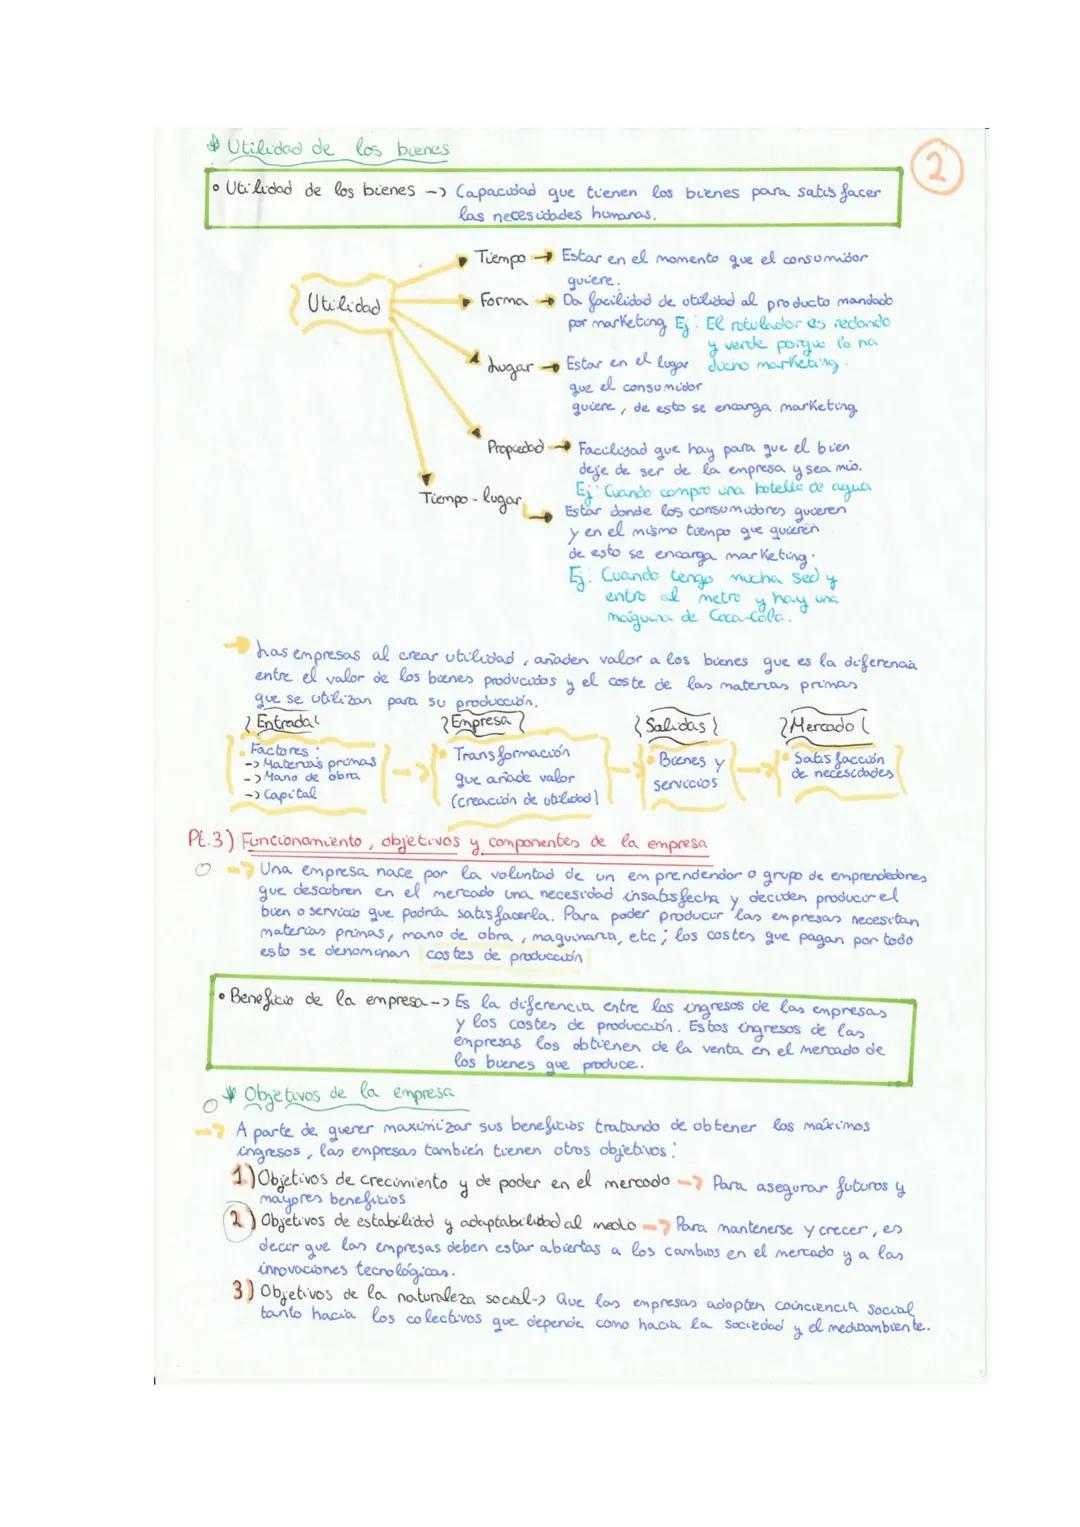 Utilidad de los bienes
2
• Utilidad de los bienes -> Capacidad que tienen los bienes para satisfacer
las necesidades humanas.
Utilidad
Tiempo → Estar en el momento que el consumidor
quiere.
Forma → Da facilidad de utilidad al producto mandado
por marketing Ej: El rotulador es redondo
y verde porque lo ha
dicho marketing.
Lugar → Estar en el lugar
que el consumidor
quiere, de esto se encarga marketing
Propiedad → Facilidad que hay para que el bien
deje de ser de la empresa y sea mío.
Ej: Cuando compro una botella de agua
Tiempo - lugar
Estar donde los consumidores quieren
y en el mismo tiempo que quieren
de esto se encarga marketing.
Ej. Cuando tengo mucha sed y
entro al metro y hay una
máquina de Coca-Cola.
→ Las empresas al crear utilidad, añaden valor a los bienes que es la diferencia
entre el valor de los bienes producidos y el coste de las materias primas
que se utilizan para su producción.
Entrada
Empresa
Salidas
Mercado
• Factores:
-> Materias primas
-> Mano de obra
-> Capital
• Transformación
que añade valor
(creación de utilidad)
• Bienes y
servicios
• Satisfacción
de necesidades
Pt.3) Funcionamiento, objetivos y componentes de la empresa
→ Una empresa nace por la voluntad de un emprendendor o grupo de emprendedores
que descubren en el mercado una necesidad insatisfecha y deciden producir el
bien o servicio que podría satisfacerla. Para poder producir las empresas necesitan
materias primas, mano de obra, maquinaria, etc; los costes que pagan por todo
esto se denominan costes de producción
• Beneficio de la empresa -> Es la diferencia entre los ingresos de las empresas
y los costes de producción. Estos ingresos de las
empresas los obtienen de la venta en el mercado de
los bienes que produce.
Objetivos de la empresa
→ A parte de querer maximizar sus beneficios tratando de obtener los máximos
ingresos, las empresas también tienen otros objetivos:
1.) Objetivos de crecimiento y de poder en el mercado → Para asegurar futuros y
mayores beneficios
2) Objetivos de estabilidad y adaptabilidad al medio → Para mantenerse y crecer, es
decir que las empresas deben estar abiertas a los cambios en el mercado y a las
innovaciones tecnológicas.
3) Objetivos de la naturaleza social -> Que las empresas adopten coinciencia social
tanto hacia los colectivos que depende como hacia la sociedad y el medioambiente.